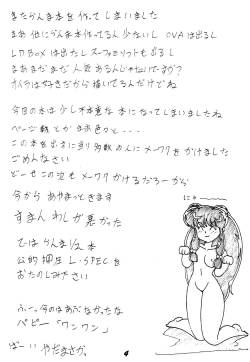 またらんま本を作ってしまいました
まぁ 他にらんま本作ってる人少ないし OVAは出るし
LD BOXは出たし スーファミソフトも出るし
まだまだ 人気あるんじゃないですか?
オイラは好きだから描いてるんだけどね
今日の本は少し不本意な本になってしまいましたね
ページ数とかまぁ色々と・・・
この本を出すに当り多数の人にメーワクをかけました
ごめんなさい
どーせこの次もメーワクかけるだろーから
今から あやまっときます
すまん わしが悪かった
ではらんま1/2本
公的抑圧L-SPECを
おたのしみ下さい
ふー。今のはあぶなかったな
ベビー「ワンワン」
ばーい やだまさか。
にゃー
4